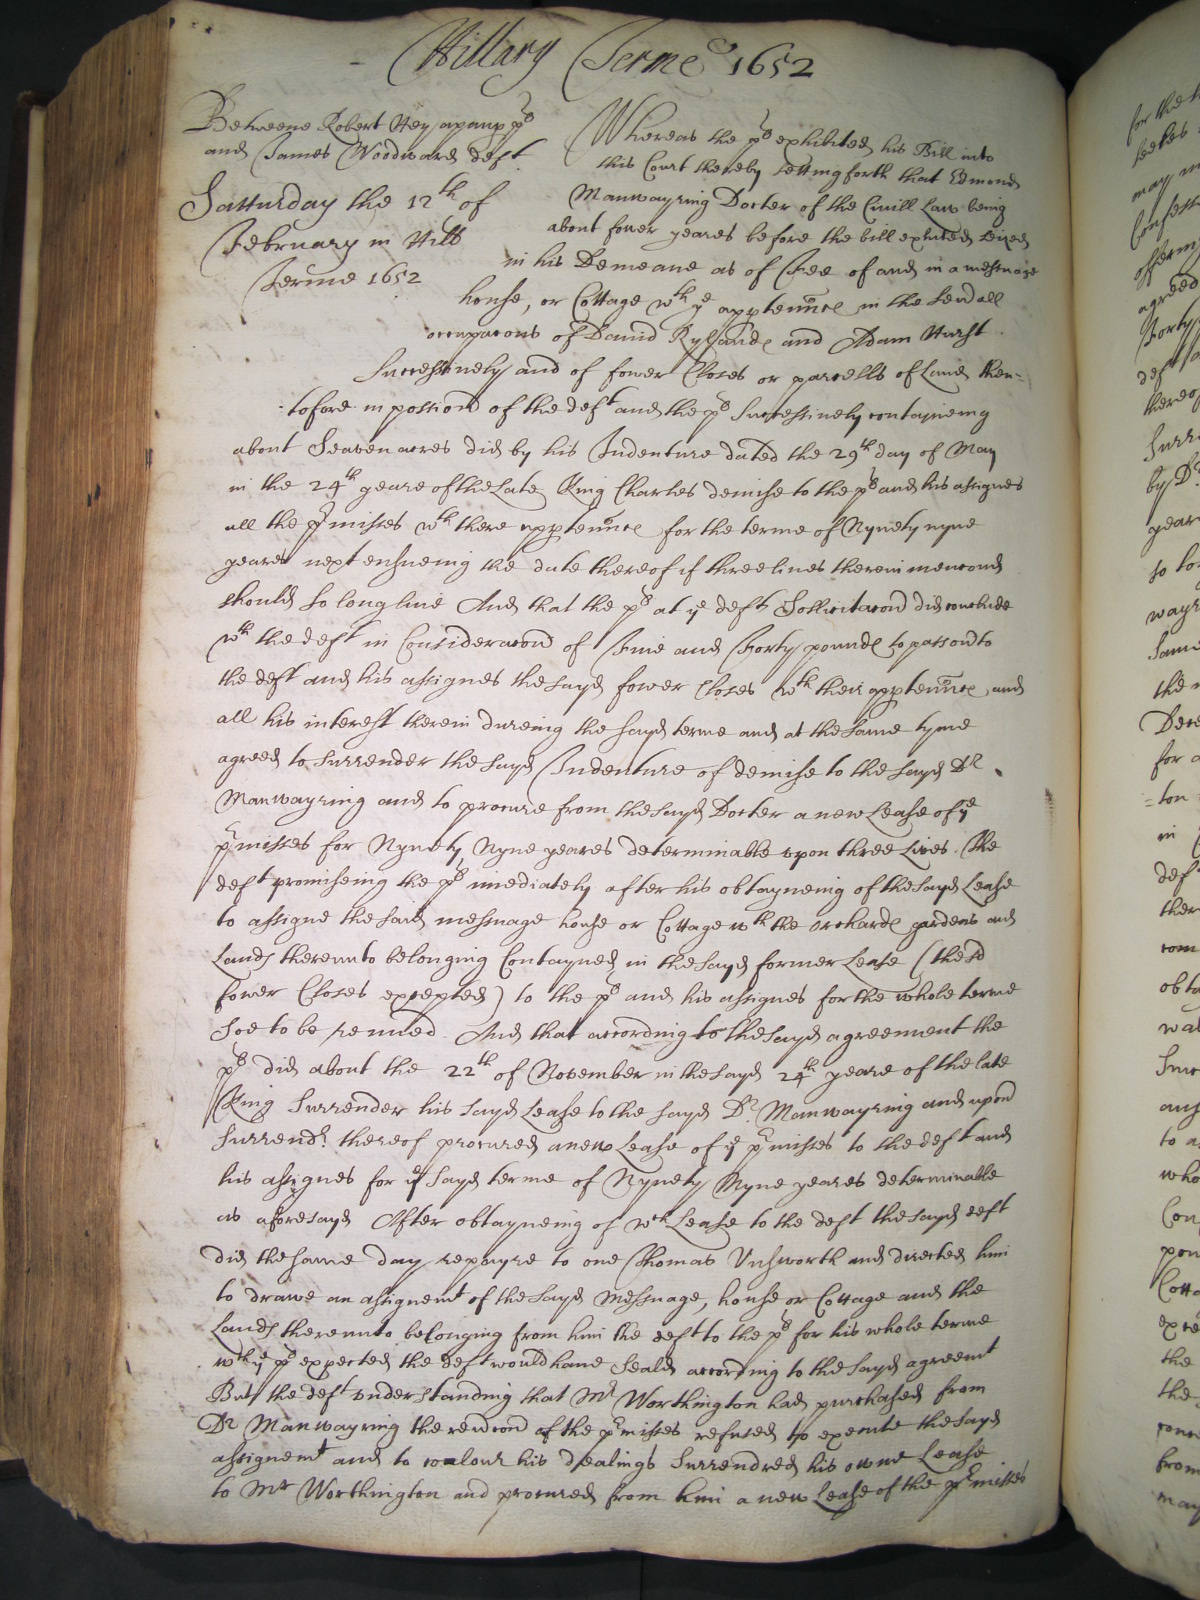 Hillary Terme 1652
Betweene Robert Hey a paup plt
and James Woodward deft
Satturday the 12th of
February in Hill
Terme 1652
Whereas the plt exhibited his Bill into
this Court thereby setting forth that Edmond
Manwayring Docter of the Civill Law being
about fower yeares before the bill exhited seized
in his Demeane as of Fee of and in a messuage
house, or Cottage wth ye apptennce in the sevall
occupacons of David Rylande and Adam Hurst
Successively and of fower Closes or parcells of Land then=
:tofore in possion of the deft and the plt Successively contayneing
about Seaven acres did by his Indenture dated the 29th day of May
in the 24th yeare of the Late King Charles demise to the plt and his assignes
all the pmisses wth there apptennce for the terme of Nynety nyne
yeares next ensueing the date thereof if three lives therein menconed
should so long live And that the plt at ye defts Sollicitacon did conclude
wth the deft in Consideracon of Five and Forty pounde to passe unto
the deft and his assignes the sayd fower Closes wth their apptennce and
all his interest therein dureing the sayd terme and at the same tyme
agreed to surrender the sayd Indenture of demise to the sayd Dr
Manwayring and to procure from the sayd Docter a new Lease of ye
pmisses for Nynety Nyne yeares determinable upon three Lives. The
deft promiseing the plt imediately after his obtayneing of the sayd Lease
to assigne the said messuage house or Cottage wth the Orcharde gardens and
Lands thereunto belonging Contayned in the sayd former Lease (the sd
fower Closes excepted) to the plt and his assignes for the whole terme
soe to be renued. And that according to the sayd agreement the
plt did about the 22th of November in the sayd 24th yeare of the late
King Surrender his sayd Lease to the sayd Dr. Manwayring and upon
Surrendr. thereof procured a new Lease of ye pmisses to the deft and
his assignes for ye sayd terme of Nynety Nyne yeares determinable
as aforesayd After obtayneing of wch Lease to the deft the sayd deft
did the same day repayre to one Thomas Unsworth and directed him
to drawe an assignemt of the sayd Messuage, house or Cottage and the
Lands thereunto belonging from him the deft to the plt for his whole terme
wch ye plt expected the deft would have Seald according to the sayd agreemt
But the deft understanding that Mr Worthington had purchased from
Dr Manwayring the revercon of the pmisses refused to execute the sayd
assignemt and to coulour his dealings Surrendred his owne Lease
to Mr Worthington and procured from him a new Lease of the pmisses
for the
may
agreed
Forty
deft
thereof
Surr
by Dr.
yeare
so lo
wayr
Same
the
for a
=ton
in
deft
ther
com
obta
wa
to a
who
Con
Cotta
exce
the
the
from
may